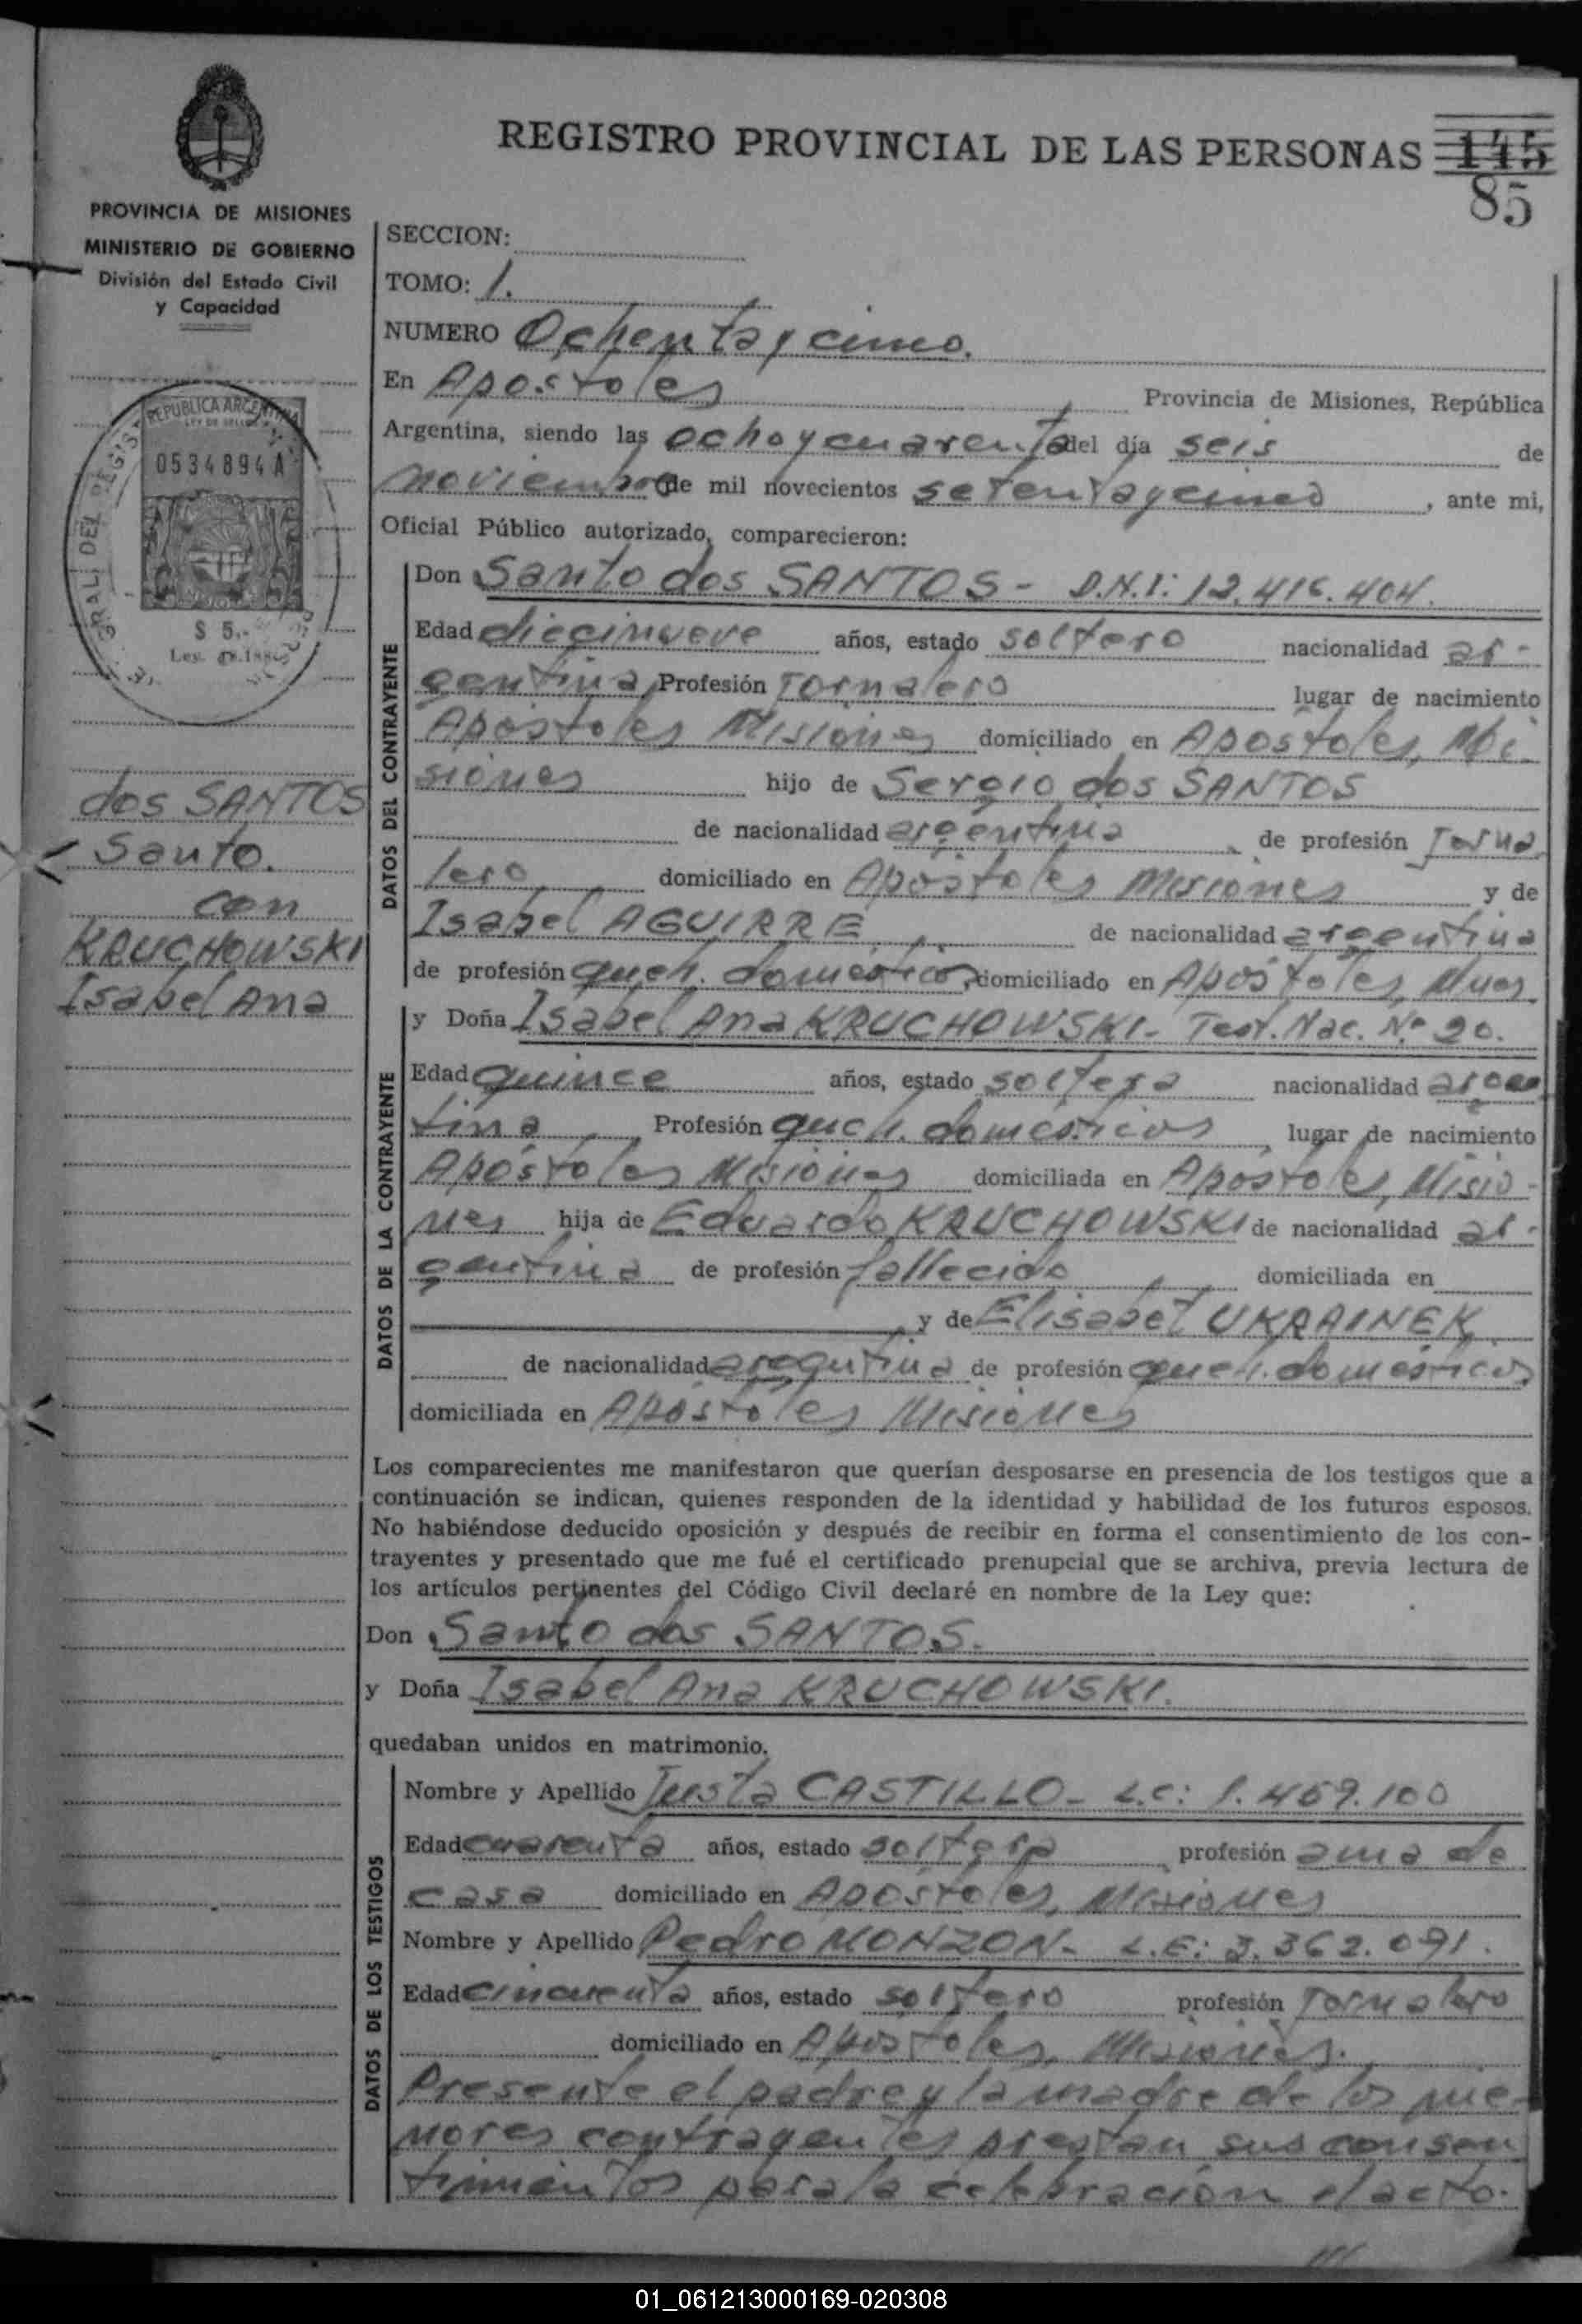 REGISTRO PROVINCIAL DE LAS PERSONAS 145
85
PROVINCIA DE MISIONES
MINISTERIO DE GOBIERNO
División del Estado Civil
y Capacidad
REPUBLICA ARGENTINA
LEY DE SELLOS
0534894 A
$ 5.-
GRAL. DEL REGIS
dos SANTOS
Santo.
con
KRUCHOWSKI
Isabel Ana
SECCION:
TOMO: 1.
NUMERO Ochenta y cinco.
En Apostoles Provincia de Misiones, República
Argentina, siendo las ocho y cuarenta del día seis de
noviembre de mil novecientos setenta y cinco, ante mi,
Oficial Público autorizado, comparecieron:
DATOS DEL CONTRAYENTE
Don Santo dos SANTOS - D.N.I: 12.416.404.
Edad diecinueve años, estado soltero nacionalidad ar-
gentina, Profesión Jornalero lugar de nacimiento
Apóstoles Misiones domiciliado en Apóstoles, Mi-
siones hijo de Sergio dos SANTOS
de nacionalidad argentina, de profesión Jorna
lero domiciliado en Apóstoles Misiones y de
Isabel AGUIRRE, de nacionalidad argentina
de profesión queh. domésticos, domiciliado en Apóstoles, Mnes.
DATOS DE LA CONTRAYENTE
y Doña Isabel Ana KRUCHOWSKI - Test. Nac. Nº 20.
Edad quince años, estado soltera nacionalidad argen
tina, Profesión queh. domésticos, lugar de nacimiento
Apóstoles Misiones domiciliada en Apostoles, Misio-
nes hija de Eduardo KRUCHOWSKI de nacionalidad ar-
gentina de profesión fallecido, domiciliada en
y de Elisabet UKRAINEK,
de nacionalidad argentina de profesión queh. domésticos
domiciliada en Apóstoles Misiones
Los comparecientes me manifestaron que querían desposarse en presencia de los testigos que a
continuación se indican, quienes responden de la identidad y habilidad de los futuros esposos.
No habiéndose deducido oposición y después de recibir en forma el consentimiento de los con-
trayentes y presentado que me fué el certificado prenupcial que se archiva, previa lectura de
los artículos pertinentes del Código Civil declaré en nombre de la Ley que:
Don Santo dos SANTOS.
y Doña Isabel Ana KRUCHOWSKI.
quedaban unidos en matrimonio.
DATOS DE LOS TESTIGOS
Nombre y Apellido Justa CASTILLO - L.C: 1.459.100
Edad cuarenta años, estado soltera, profesión ama de
casa domiciliado en Apóstoles, Misiones
Nombre y Apellido Pedro MONZON - L.E: 3.362.091.
Edad cincuenta años, estado soltero profesión Jornalero
domiciliado en Apóstoles, Misiones.
Presente el padre y la madre de los me-
nores contrayentes prestan sus consen
timientos para la celebración el acto.
01_061213000169-020308